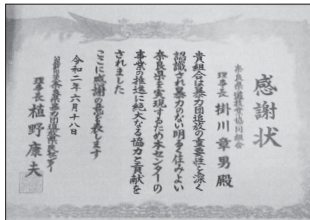 感謝状
奈良県遊技業協同組合
理事長 掛川章男殿
貴組合は暴力団追放の重要性を深く
認識され暴力のない明るく住みよい
奈良県を実現するため本センターの
事業の推進に絶大なる協力と貢献を
されました
ここに感謝の意を表します
令和二年六月十八日
理事長 植野康夫